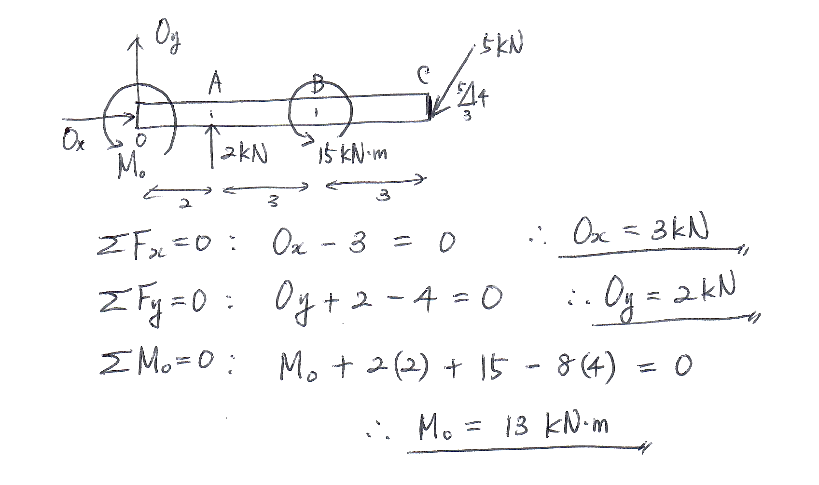 Oy
5kN
A
B
C
5
4
3
Ox
O
Mo
2kN
15 kN·m
2
3
3
ΣFx=0 : Ox - 3 = 0 ∴ Ox = 3kN
ΣFy=0 : Oy + 2 - 4 = 0 ∴ Oy = 2kN
ΣMo=0 : Mo + 2(2) + 15 - 8(4) = 0
∴ Mo = 13 kN·m